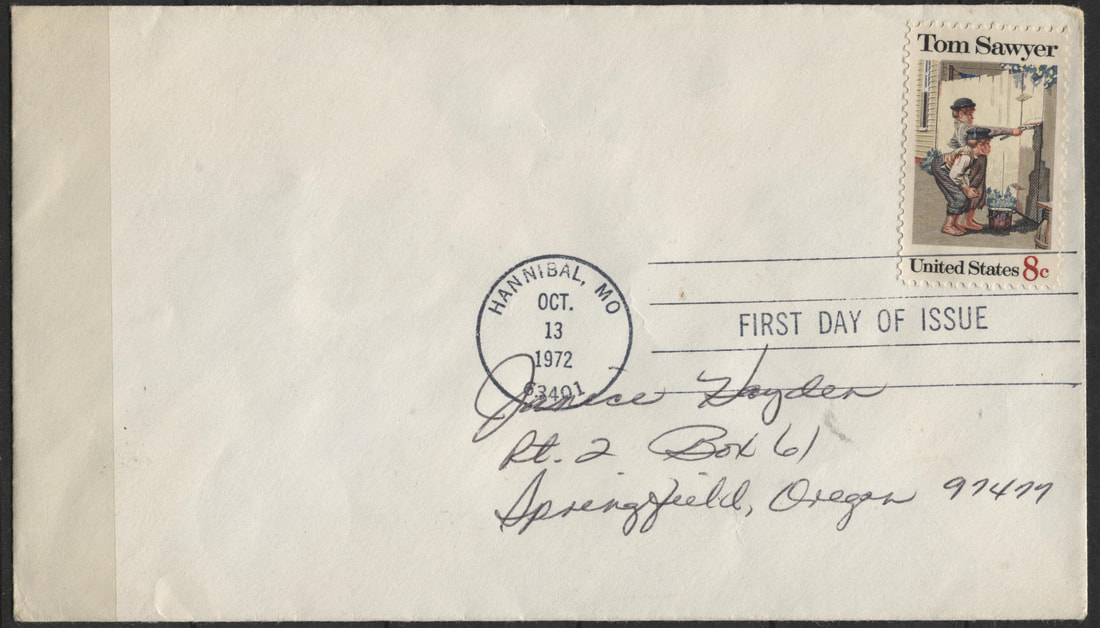 Tom Sawyer
United States 8c
HANNIBAL, MO
OCT.
13
1972
63401
FIRST DAY OF ISSUE
Janice Hayden
Rt. 2 Box 61
Springfield, Oregon 97477